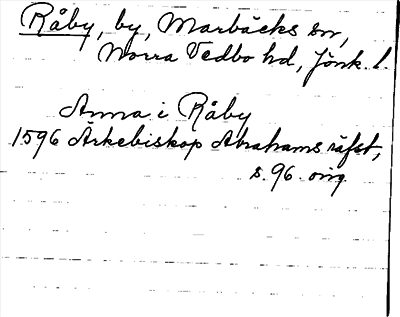 Råby, by, Marbäcks sn,
Norra Vedbo hd, Jönk. l.
Anna i Råby
1596 Ärkebiskop Abrahams räfst,
s. 96. orig.